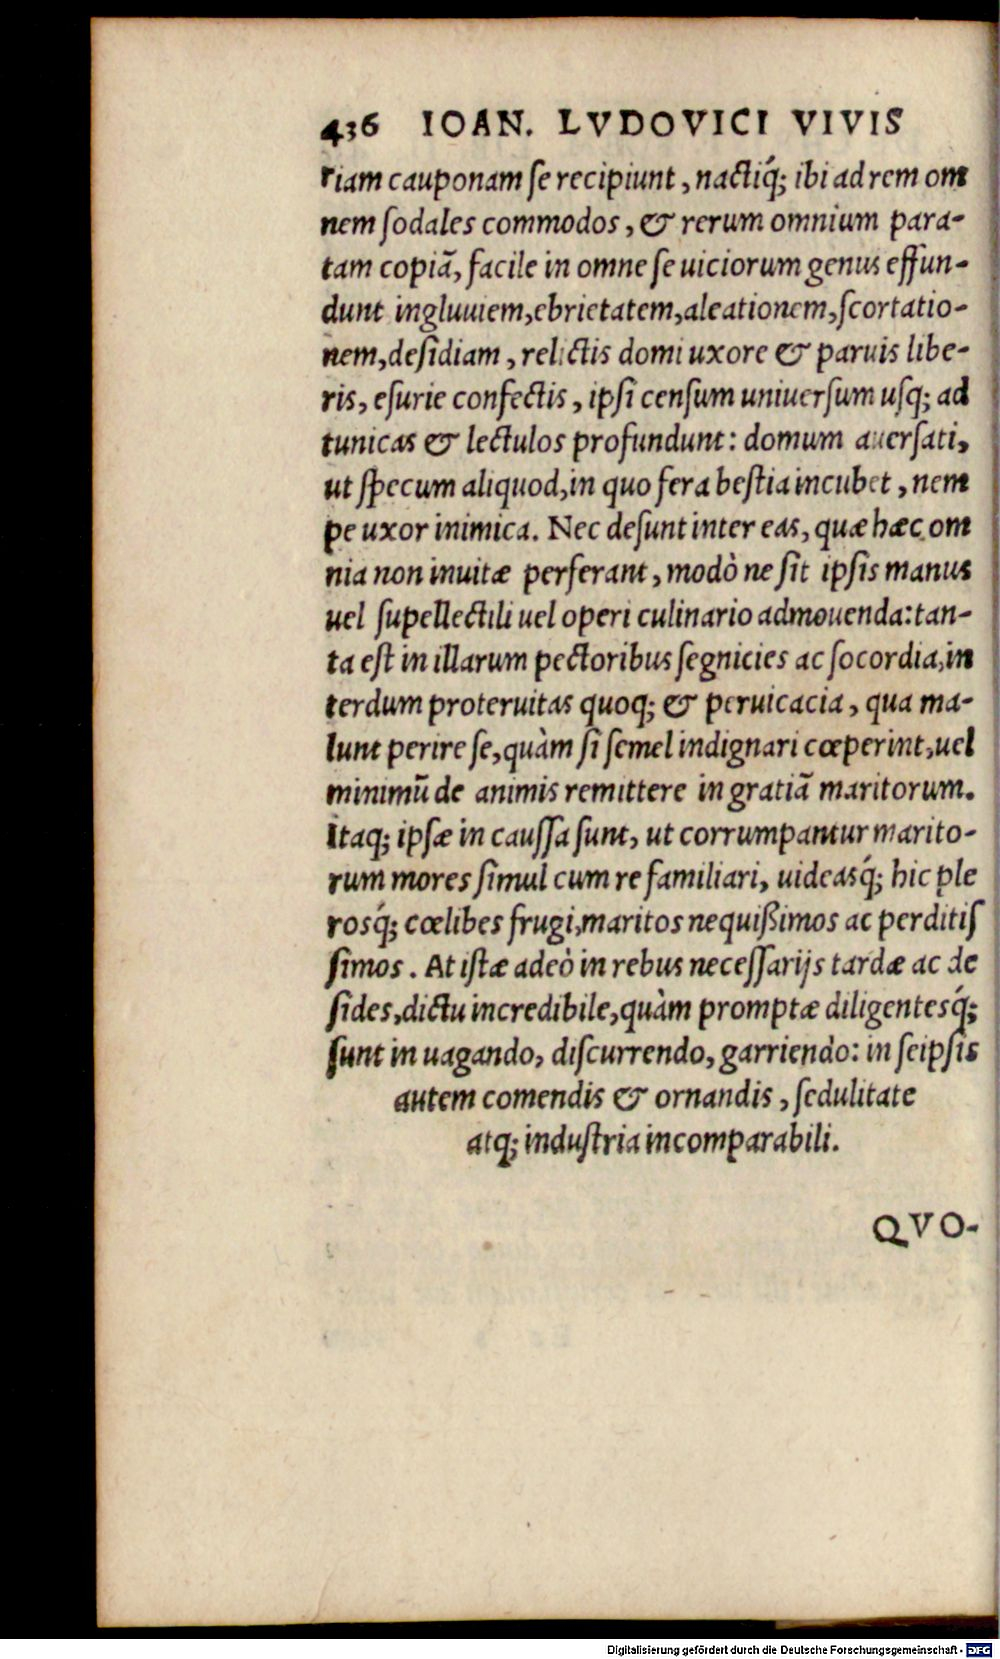 436 IOAN. LVDOVICI VIVIS
riam cauponam ſe recipiunt, nactiq́; ibi ad rem om
nem ſodales commodos, & rerum omnium para-
tam copiã, facile in omne ſe uiciorum genus effun-
dunt ingluuiem, ebrietatem, aleationem, ſcortatio-
nem, deſidiam, relictis domi uxore & paruis libe-
ris, eſurie confectis, ipſi cenſum uniuerſum uſq; ad
tunicas & lectulos profundunt: domum auerſati,
ut ſpecum aliquod, in quo fera beſtia incubet, nem
pe uxor inimica. Nec deſunt inter eas, quæ hæc om
nia non inuitæ perferant, modò ne ſit ipſis manus
uel ſupellectili uel operi culinario admouenda: tan-
ta eſt in illarum pectoribus ſegnicies ac ſocordia, in
terdum proteruitas quoq; & peruicacia, qua ma-
lunt perire ſe, quàm ſi ſemel indignari cœperint, uel
minimũ de animis remittere in gratiã maritorum.
Itaq; ipſæ in cauſſa ſunt, ut corrumpantur marito-
rum mores ſimul cum re familiari, uideasq́; hic ple
rosq́; cœlibes frugi, maritos nequißimos ac perditiſ
ſimos. At iſtæ adeò in rebus neceſſarijs tardæ ac de
ſides, dictu incredibile, quàm promptæ diligentesq́;
ſunt in uagando, diſcurrendo, garriendo: in ſeipſis
autem comendis & ornandis, ſedulitate
atq; induſtria incomparabili.
QVO-
Digitalisierung gefördert durch die Deutsche Forschungsgemeinschaft - DFG